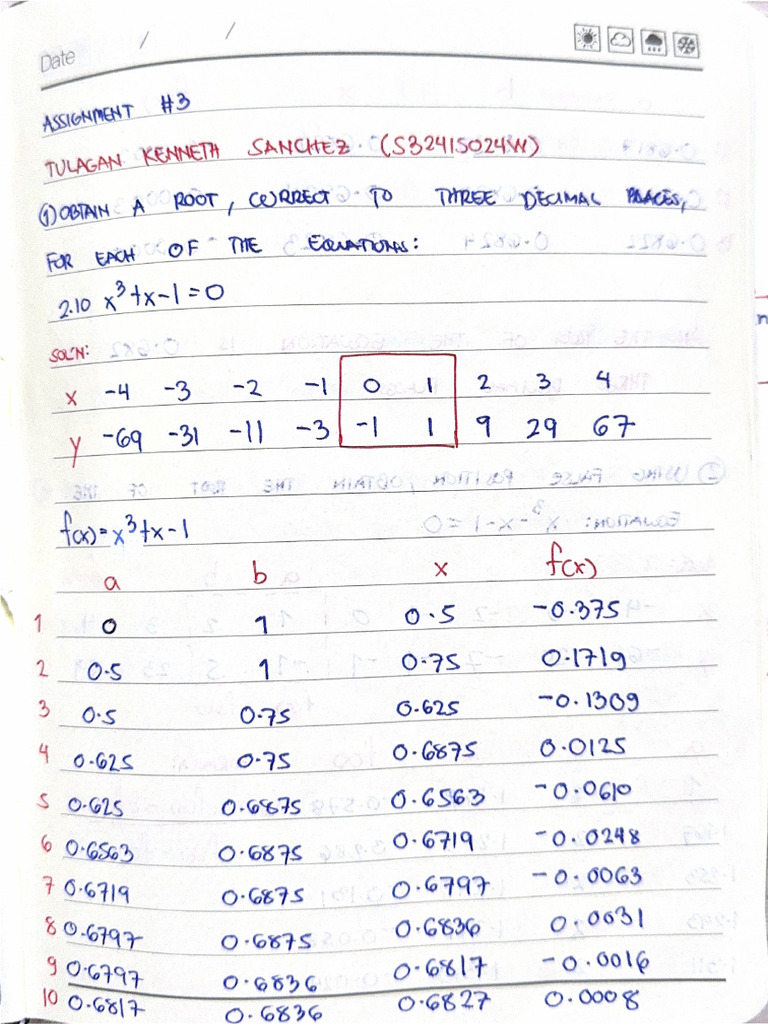 Date / /
ASSIGNMENT #3
TULAGAN KENNETH SANCHEZ (S32415024W)
① OBTAIN A ROOT, CORRECT TO THREE DECIMAL PLACES,
FOR EACH OF THE EQUATIONS:
2.10 x³+x-1=0
SOL'N:
x -4 -3 -2 -1 0 1 2 3 4
y -69 -31 -11 -3 -1 1 9 29 67
f(x)=x³+x-1
a b x f(x)
1 0 1 0.5 -0.375
2 0.5 1 0.75 0.1719
3 0.5 0.75 0.625 -0.1309
4 0.625 0.75 0.6875 0.0125
5 0.625 0.6875 0.6563 -0.0610
6 0.6563 0.6875 0.6719 -0.0248
7 0.6719 0.6875 0.6797 -0.0063
8 0.6797 0.6875 0.6836 0.0031
9 0.6797 0.6836 0.6817 -0.0016
10 0.6817 0.6836 0.6827 0.0008